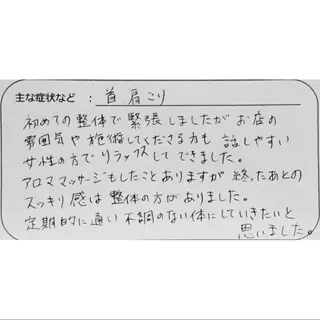 主な症状など : 首 肩こり
初めての整体で緊張しましたがお店の
雰囲気や施術してくださる方も 話しやすい
女性の方でリラックスしてできました。
アロママッサージもしたことありますが 終ったあとの
スッキリ感は整体の方がありました。
定期的に通い不調のない体にしていきたいと
思いました。